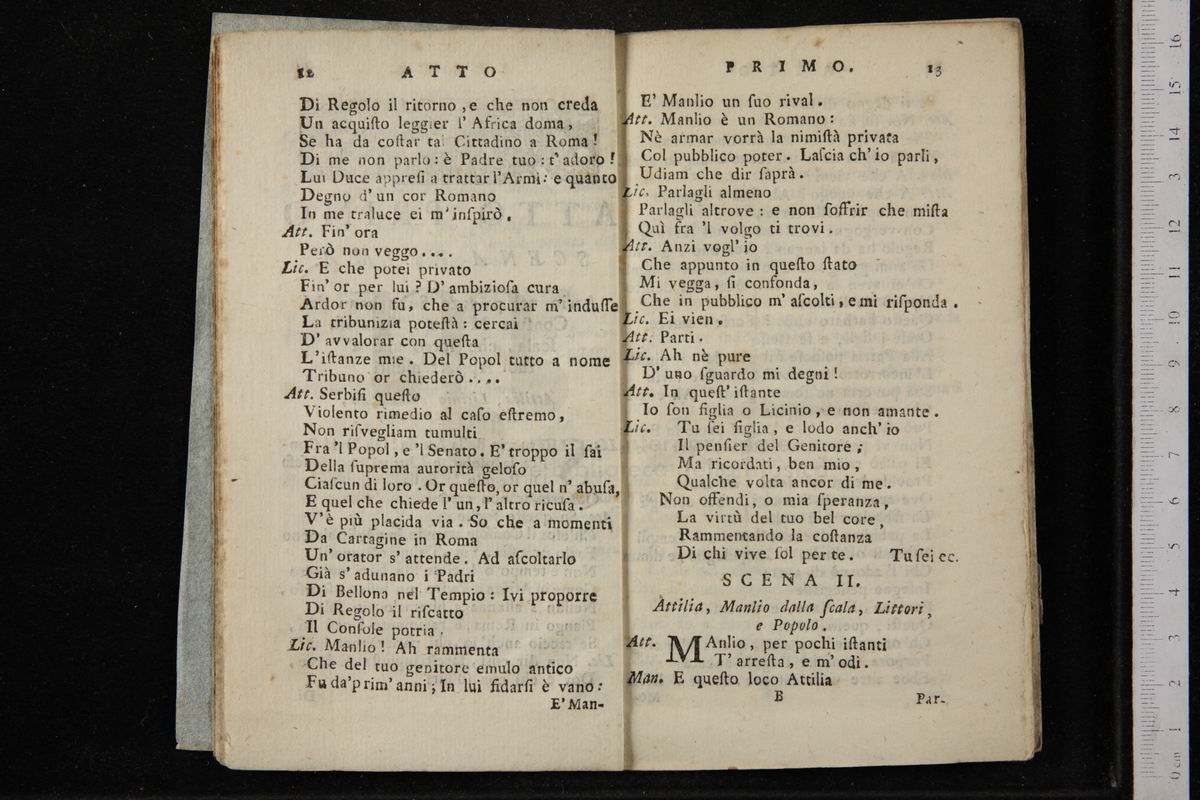 12 ATTO
Di Regolo il ritorno, e che non creda
Un acquiſto leggier l' Africa doma,
Se ha da coſtar tal Cittadino a Roma!
Di me non parlo: è Padre tuo: t' adoro!
Lui Duce appreſi a trattar l'Armi: e quanto
Degno d' un cor Romano
In me traluce ei m' inſpirò.
Att. Fin' ora
Però non veggo....
Lic. E che potei privato
Fin' or per lui? D' ambizioſa cura
Ardor non fu, che a procurar m' induſſe
La tribunizia poteſtà: cercai
D' avvalorar con queſta
L'iſtanze mie. Del Popol tutto a nome
Tribuno or chiederò....
Att. Serbiſi queſto
Violento rimedio al caſo eſtremo,
Non riſvegliam tumulti
Fra 'l Popol, e 'l Senato. E' troppo il ſai
Della ſuprema autorità geloſo
Ciaſcun di loro. Or queſto, or quel n' abuſa,
E quel che chiede l' un, l' altro ricuſa.
V' è più placida via. So che a momenti
Da Cartagine in Roma
Un' orator s' attende. Ad aſcoltarlo
Già s' adunano i Padri
Di Bellona nel Tempio: Ivi proporre
Di Regolo il riſcatto
Il Conſole potria.
Lic. Manlio! Ah rammenta
Che del tuo genitore emulo antico
Fu da' prim' anni; In lui fidarſi è vano:
E' Man-
PRIMO. 13
E' Manlio un ſuo rival.
Att. Manlio è un Romano:
Nè armar vorrà la nimiſtà privata
Col pubblico poter. Laſcia ch' io parli,
Udiam che dir ſaprà.
Lic. Parlagli almeno
Parlagli altrove: e non ſoffrir che miſta
Quì fra 'l volgo ti trovi.
Att. Anzi vogl' io
Che appunto in queſto ſtato
Mi vegga, ſi confonda,
Che in pubblico m' aſcolti, e mi riſponda.
Lic. Ei vien.
Att. Parti.
Lic. Ah nè pure
D' uno ſguardo mi degni!
Att. In queſt' iſtante
Io ſon figlia o Licinio, e non amante.
Lic. Tu ſei figlia, e lodo anch' io
Il penſier del Genitore;
Ma ricordati, ben mio,
Qualche volta ancor di me.
Non offendi, o mia ſperanza,
La virtù del tuo bel core,
Rammentando la coſtanza
Di chi vive ſol per te. Tu ſei ec.
SCENA II.
Attilia, Manlio dalla ſcala, Littori,
e Popolo.
Att. MAnlio, per pochi iſtanti
T' arreſta, e m' odi.
Man. E queſto loco Attilia
B Par-
0 cm 1 2 3 4 5 6 7 8 9 10 11 12 13 14 15 16